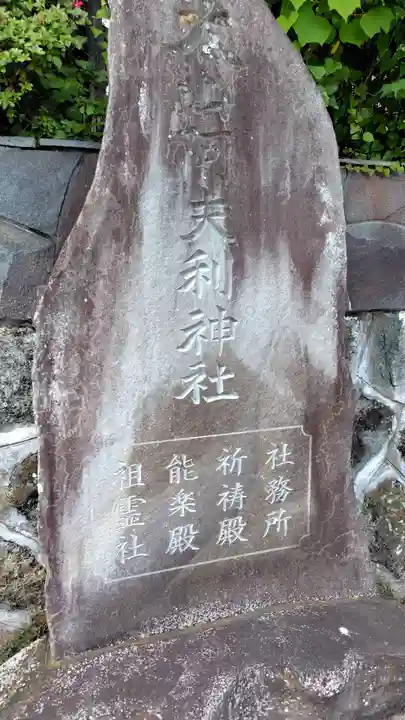 大山阿夫利神社
社務所
祈祷殿
能楽殿
祖霊社